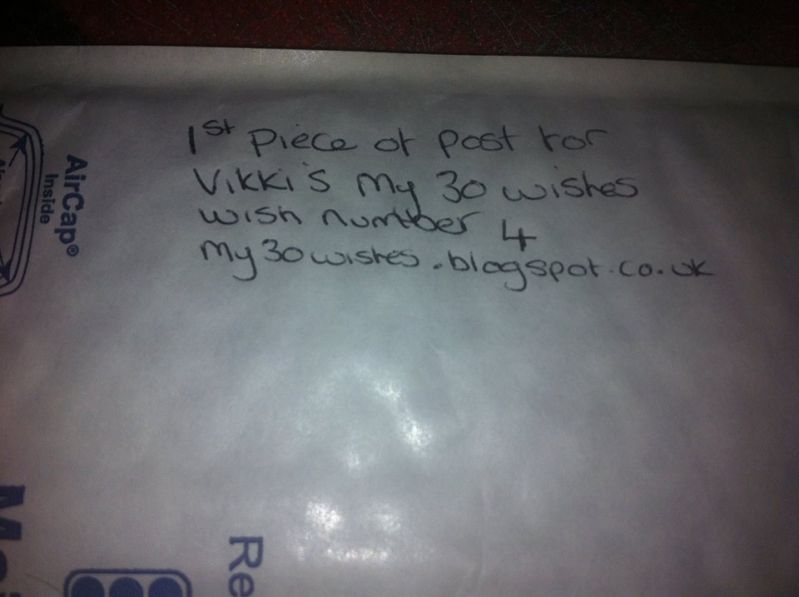 1st Piece of post for
Vikki's My 30 wishes
wish number 4
My30wishes.blogspot.co.uk
AirCap®
Inside
Re